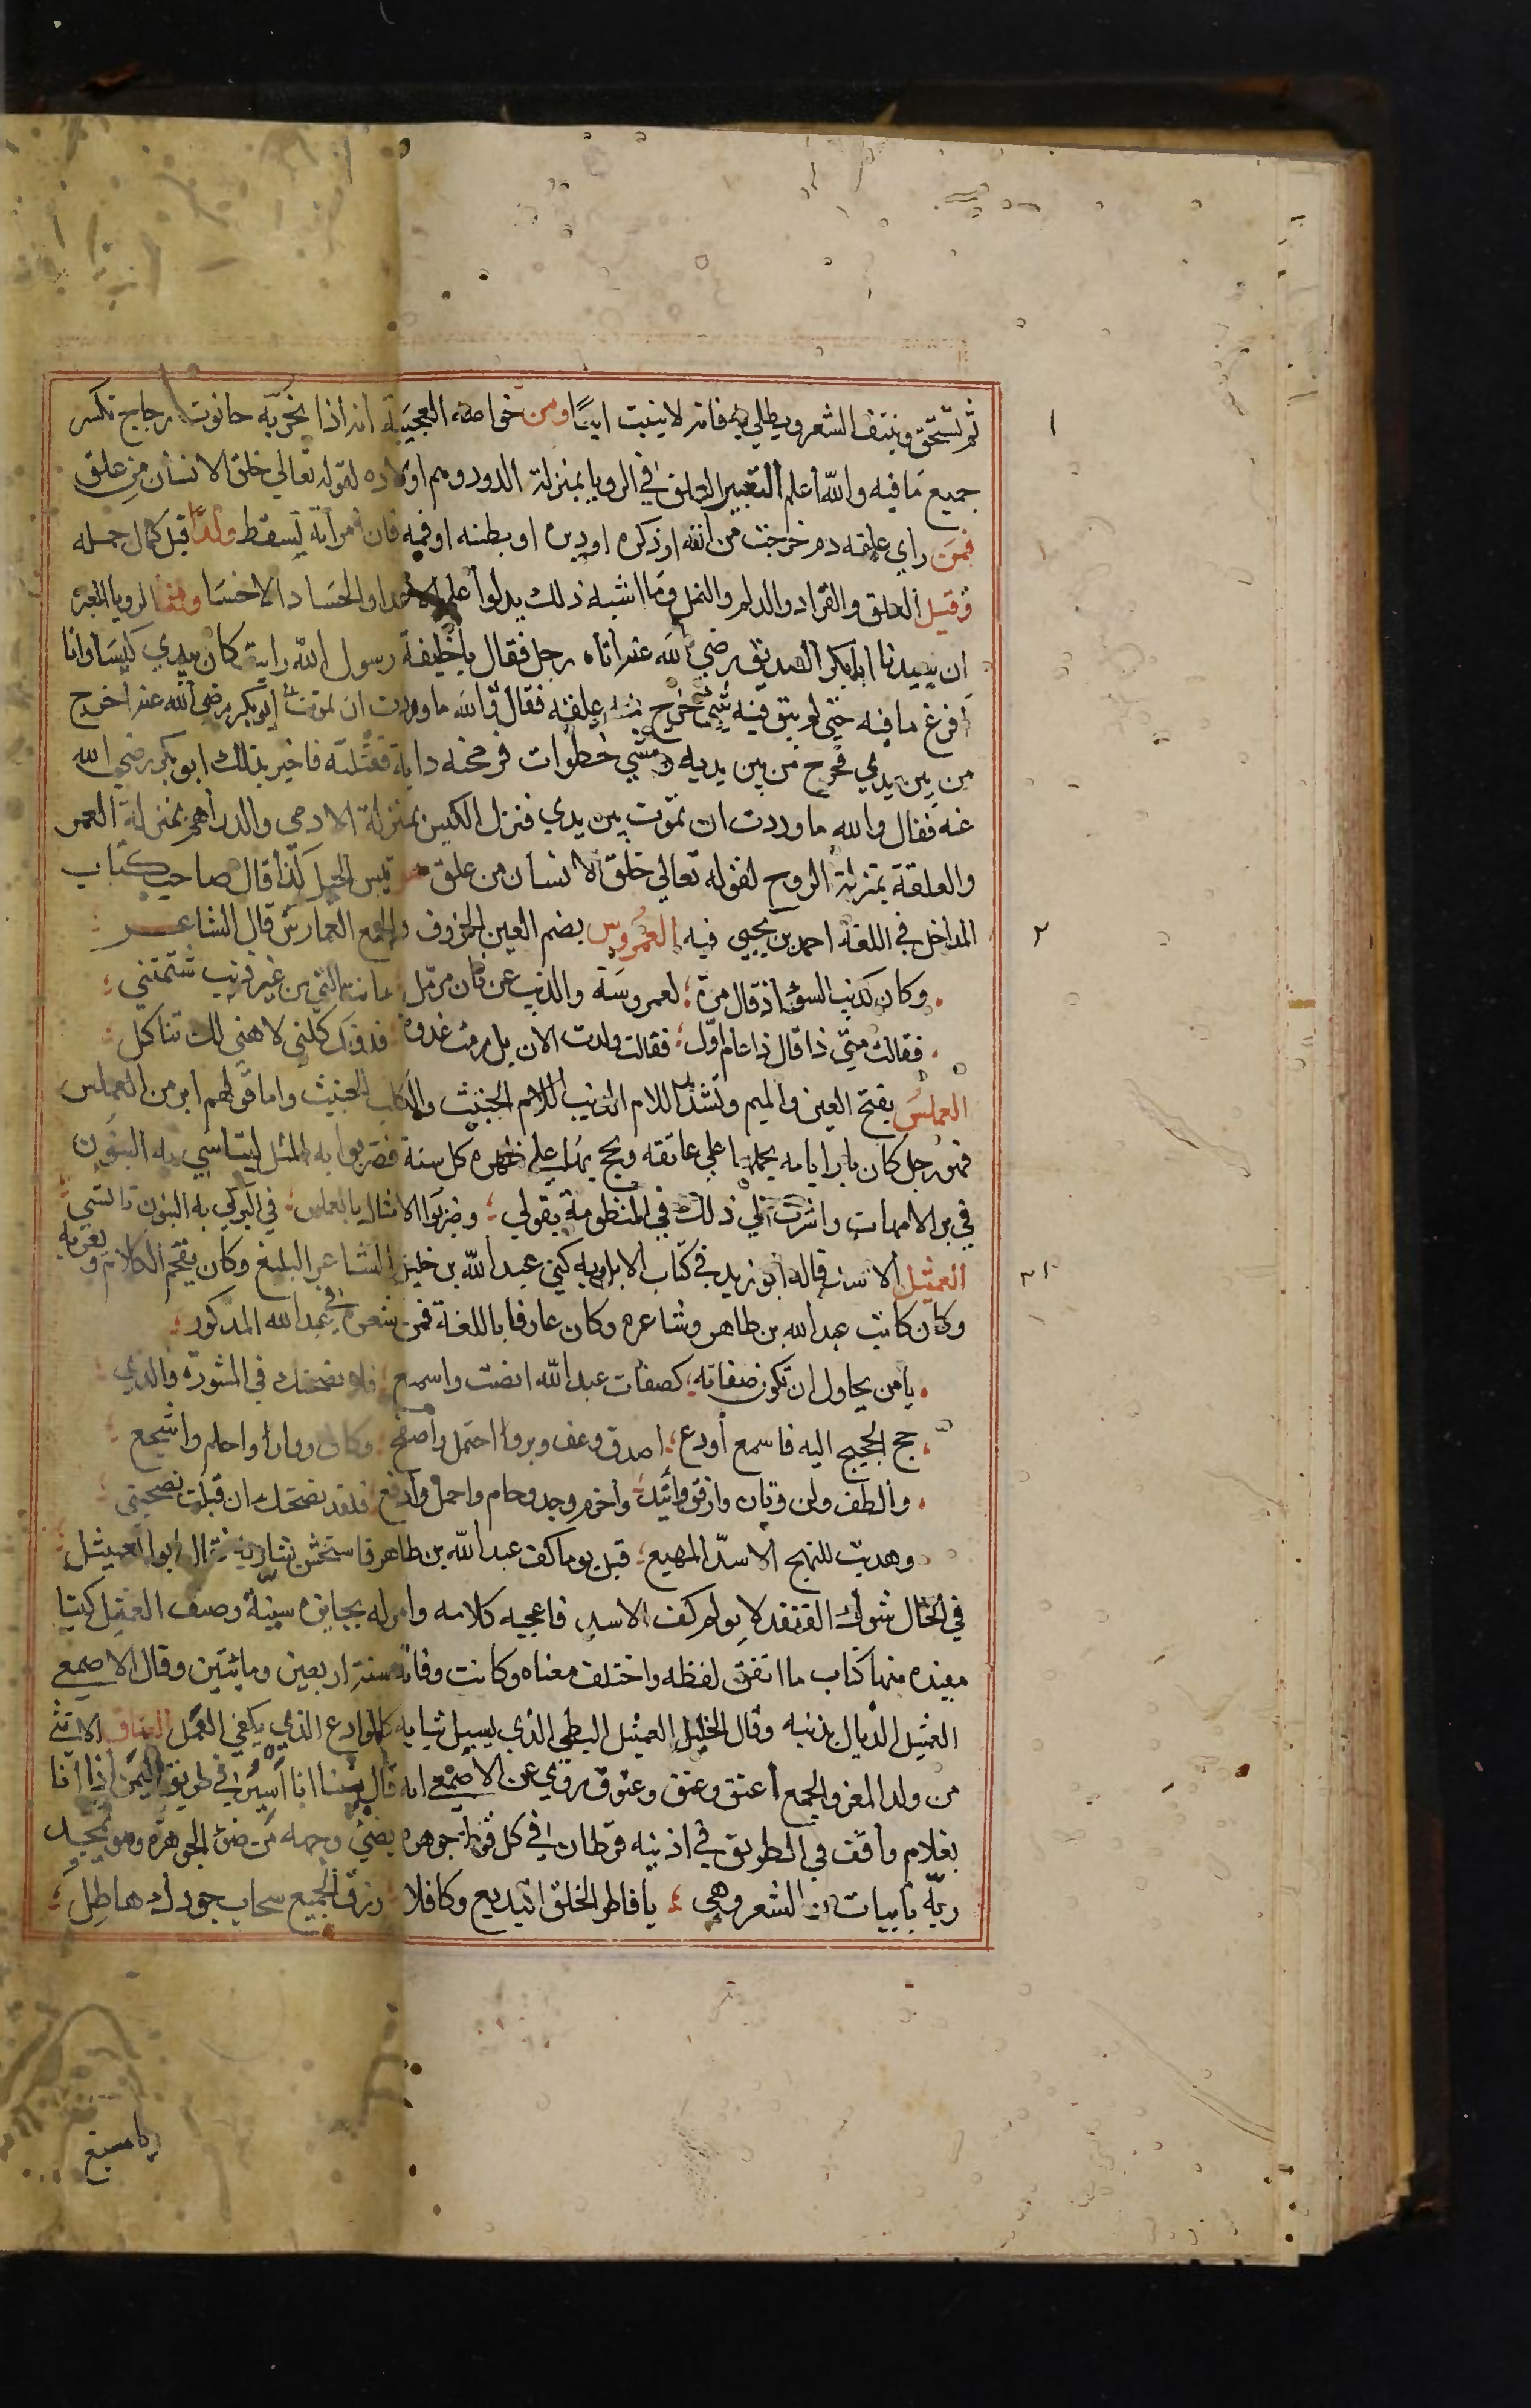 ثم تستحق وينتف الشعر ويطلي به فانه لا ينبت ابدًا ومن خواصه العجيبة انه اذا بخر به حانوت زجاج تكسر
جميع ما فيه والله اعلم التعبير العلق في الرويا بمنزلة الدود وهم اولاده لقوله تعالي خلق الانسان من علق
فمن راي علقه دم خرجت من انفه او ذكره او دبره او بطنه او فمه فان امراته يسقط ولدًا قبل كمال حمله
وقيل العلق والقراد والدلم والنمل وما اشبه ذلك يدلوا علي الاعدا والحساد الاخسا ومنها الرويا المعبرة
ان سيدنا ابا بكر الصديق رضي الله عنه اتاه رجل فقال يا خليفة رسول الله رايت كان بيدي كيسا وانا
افرغ ما فيه حتي لم يبق فيه شي فخرج منه علقه فقال والله ما وددت ان تموت ابو بكر رضي الله عنه اخرج
من بين يدي فخرج من بين يديه ومشي خطوات فرمحته دابة فقتلته فاخبر بذلك ابو بكر رضي الله
عنه فقال والله ما وددت ان تموت بين يدي فنزل الكيس بمنزلة الادمي والدراهم بمنزلة العمر
والعلقة بمنزلة الروح لقوله تعالي خلق الانسان من علق تيس الجبل كذا قال صاحب كتاب
المداخل في اللغة احمد بن يحيي فيه العمروس بضم العين الخروف والجمع العمارس قال الشاعر
وكان كذيب السؤ اذ قال مرة لعمروسة والذيب عن فان مرمل اانت التي من غير ذنب شتمتني
فقالت متي ذا قال ذا عام اول فقالت ولدت الان بل رمت غدوة فدونك كلني لا هني لك تاكل
العملس بفتح العين والميم وتشديد اللام الذيب اللام الخبيث والكلب الخبيث واما قولهم ابر من العملس
فهو رجل كان بارا بامه يحملها علي عاتقه ويحج بها علي ظهره كل سنة فضربوا به المثل ليتاسي به البنون
في بر الامهات واشرت الي ذلك في المنظومة بقولي وضربوا الامثال بالعملس في البر كي به البنون تاتسي
العميثل الاسد قاله ابو زيد في كتاب الابل وبه كني عبد الله بن خليد الشاعر البليغ وكان يفخم الكلام ويعربه
وكان كاتب عبد الله بن طاهر وشاعره وكان عارفا باللغة فمن شعره في عبد الله المذكور
يا من يحاول ان تكون صفاته كصفات عبد الله انصت واسمع فلانصحنك في المشورة والذي
حج الحجيج اليه فاسمع أو دع اصدق وعف وبر احتمل واصفح وكاف ودار واحلم واشجع
والطف ولن وتان وارفق واتئد واحزم وجد وحام واحمل وادفع فلقد نصحتك ان قبلت نصحيتي
وهديت للنهج الاسد المهيع قبل يوما كف عبد الله بن طاهر فاستخشن شاربه فقال ابو العميثل
في الحال شوك القنفد لا يولم كف الاسد فاعجبه كلامه وامر له بجايزه سنية وصنف العميثل كتبا
مفيده منها كتاب ما اتفق لفظه واختلف معناه وكانت وفاته سنة اربعين وماىتين وقال الاصمعي
العميثل الذيال بذنبه وقال الخليل العميثل البطي الذي يسبل ثيابه كالوادع الذي يكفي العمل العناق الانثي
من ولد المعز والجمع أعنق وعنق وعنوق روي عن الاصمعي انه قال بينا انا أسير في طريق اليمن اذا انا
بغلام واقف في الطريق في اذنيه قرطان في كل قرط جوهره يضيئ وجهه من ضوء الجوهره وهو يمجد
ربه بابيات من الشعر وهي يا فاطر الخلق البديع وكافلا رزق الجميع سحاب جودك هاطل